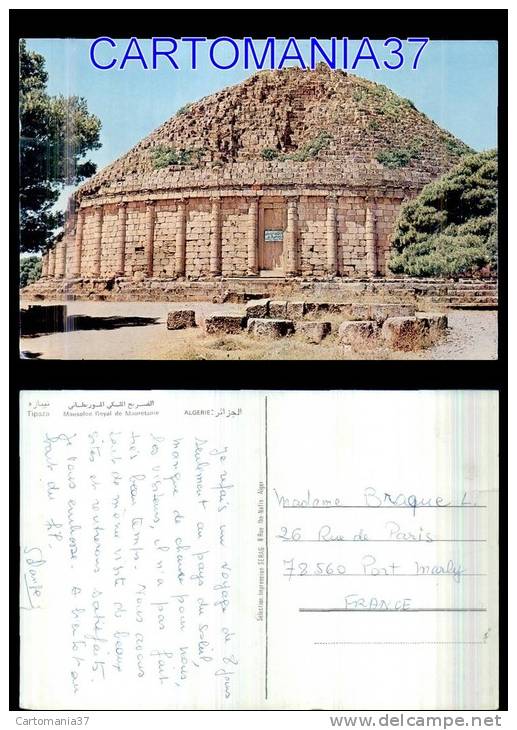 CARTOMANIA37
تيبازة الضريح الملكي الموريطاني
Tipaza Mausolée Royal de Mauretanie
ALGERIE: الجزائر
Je refais un voyage de 8 jours
seulement au pays du soleil,
manque de chance pour nous,
les visiteurs, il n'a pas fait
très beau temps. Nous avons
tout de même visité de beaux
sites et rentrerons satisfaits.
Je vous embrasse. A bientôt au
Sélection Impression SERAG 8 Rue Alger
Madame Braque L.
26 Rue de Paris
78560 Port Marly
FRANCE
Cartomania37
www.delcampe.net